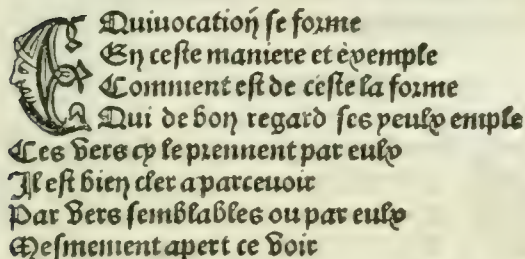 EQuiuocation ſe forme
En ceſte maniere et exemple
Comment eſt de ceſte la forme
Qui de bon regard ſes yeulx emple
Ces vers cy le prennent par eulx
Il eſt bien cler a parceuoir
Par vers ſemblables ou par eulx
Meſmement apert ce voir